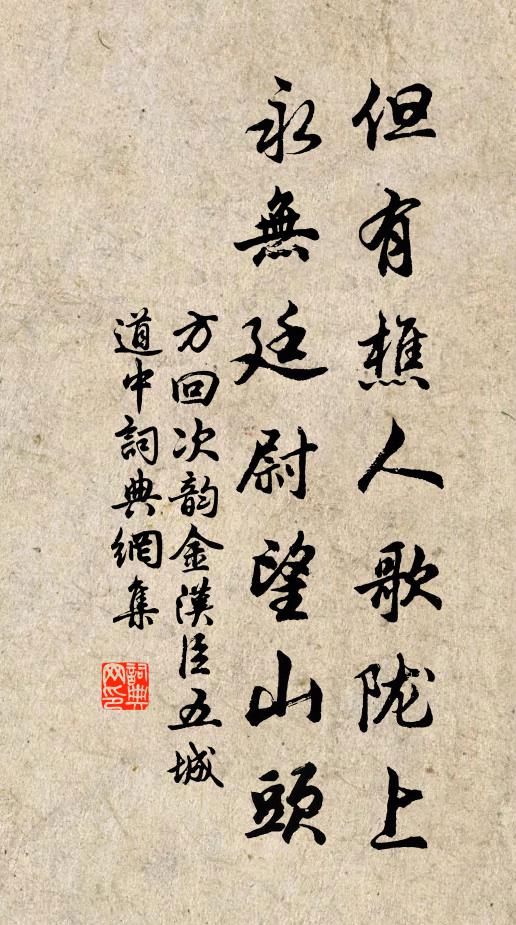 但有樵人歌陇上
永無廷尉望山頭
方回次韵金漢臣五城
道中詞典網集
詞典
网印